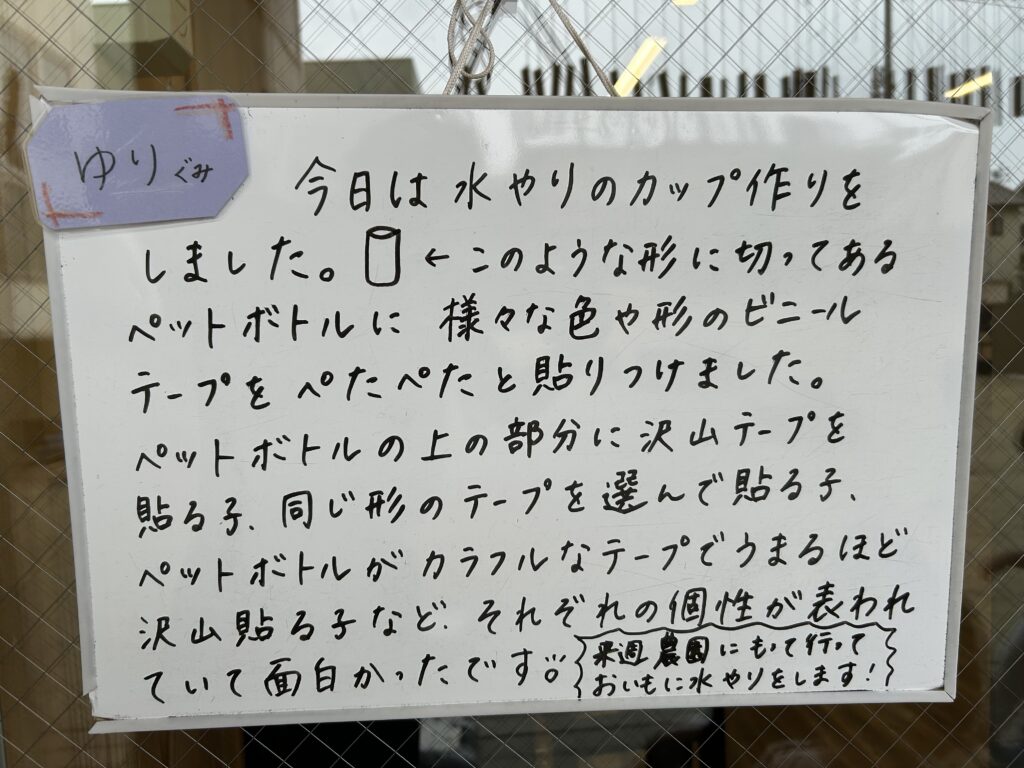 ゆりぐみ
今日は水やりのカップ作りを
しました。 ←このような形に切ってある
ペットボトルに様々な色や形のビニール
テープをぺたぺたと貼りつけました。
ペットボトルの上の部分に沢山テープを
貼る子、同じ形のテープを選んで貼る子、
ペットボトルがカラフルなテープでうまるほど
沢山貼る子など、それぞれの個性が表われ
ていて面白かったです。
来週農園にもって行って
おいもに水やりをします!